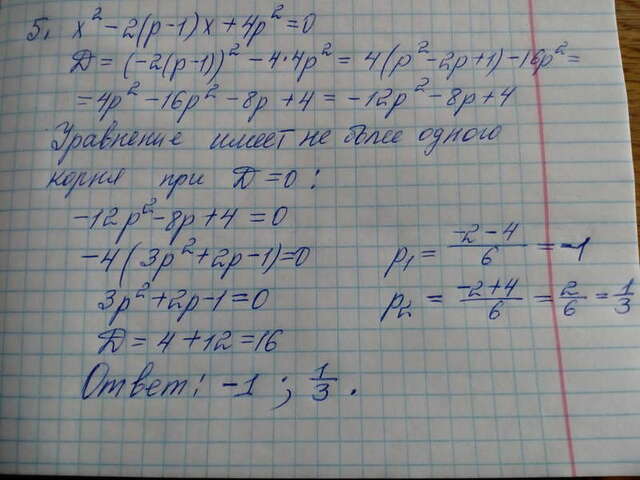 5. x² - 2(p-1)x + 4p² = 0
D = (-2(p-1))² - 4·4p² = 4(p² - 2p + 1) - 16p² =
= 4p² - 16p² - 8p + 4 = -12p² - 8p + 4
Уравнение имеет не более одного
корня при D = 0 :
-12p² - 8p + 4 = 0
-4(3p² + 2p - 1) = 0
3p² + 2p - 1 = 0
D = 4 + 12 = 16
p₁ = (-2 - 4)/6 = -1
p₂ = (-2 + 4)/6 = 2/6 = 1/3
Ответ: -1 ; 1/3 .